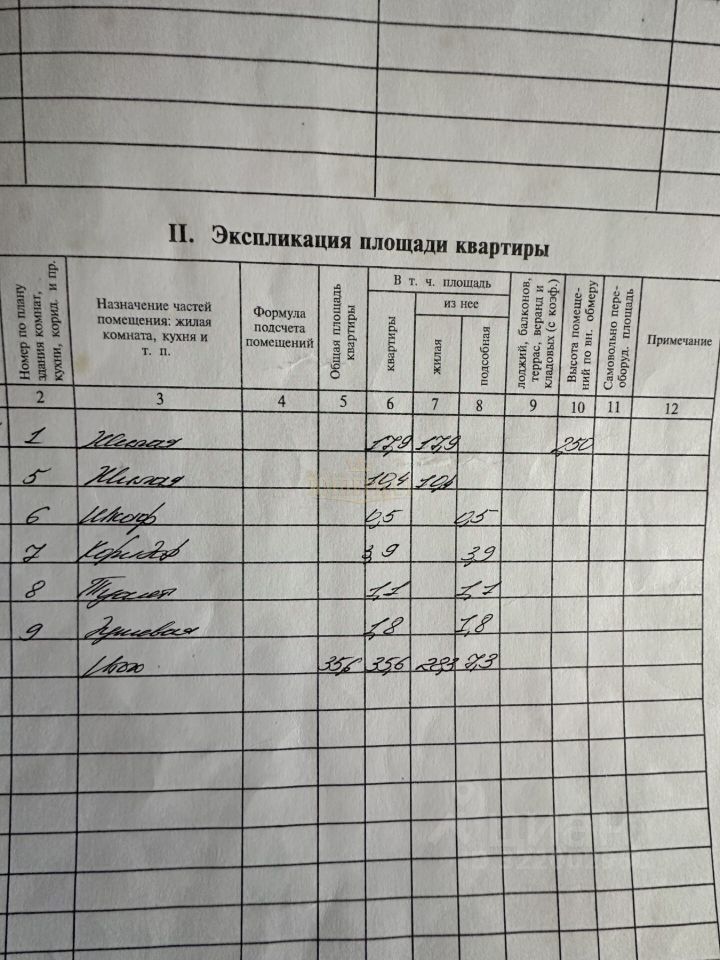 II. Экспликация площади квартиры
Номер по плану здания комнат, кухни, корид. и пр.
Назначение частей помещения: жилая комната, кухня и т. п.
Формула подсчета помещений
Общая площадь квартиры
В т. ч. площадь
квартиры
из нее
жилая
подсобная
лоджий, балконов, террас, веранд и кладовых (с коэф.)
Высота помещений по вн. обмеру
Самовольно переоборуд. площадь
Примечание
2 3 4 5 6 7 8 9 10 11 12
1 Жилая 17,9 17,9 2,50
5 Жилая 10,4 10,4
6 Шкаф 0,5 0,5
7 Коридор 3,9 3,9
8 Туалет 1,1 1,1
9 Душевая 1,8 1,8
Итого 35,6 35,6 28,3 7,3
циан